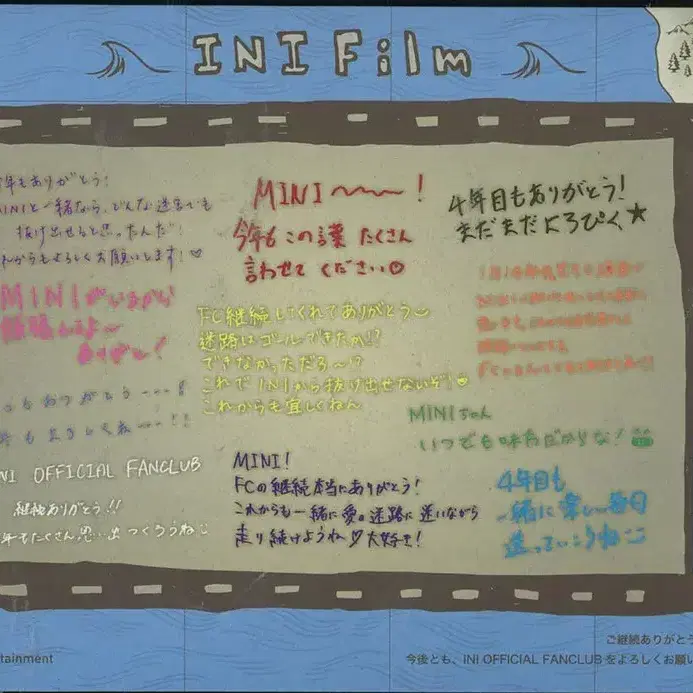 INI Film
年もありがとう!
MINIと一緒なら、どんな迷宮でも
抜け出せると思ったんだ!
れからもよろしくお願いします!♡
MINI〜〜〜!
今年もこの言葉 たくさん
言わせてください♡
4年目もありがとう!
まだまだよろぴく★
MINIがいるから
頑張れるよ〜
ありがと!
FC継続してくれてありがとう
迷路はゴールできたか!?
できなかっただろ〜!?
これでINIから抜け出せないぞ!
これからも宜しくねん
もありがとう
年もよろしくね
MINIちゃん
いつでも味方だからな!
NI OFFICIAL FANCLUB
継続ありがとう!!
年もたくさん思い出つくろうね
MINI!
FCの継続本当にありがとう!
これからも一緒に愛の迷路に迷いながら
走り続けようね♡大好き!
4年目も
一緒に楽しい毎日
送っていこうね
ご継続ありがとう
tainment
今後とも、INI OFFICIAL FANCLUBをよろしくお願い